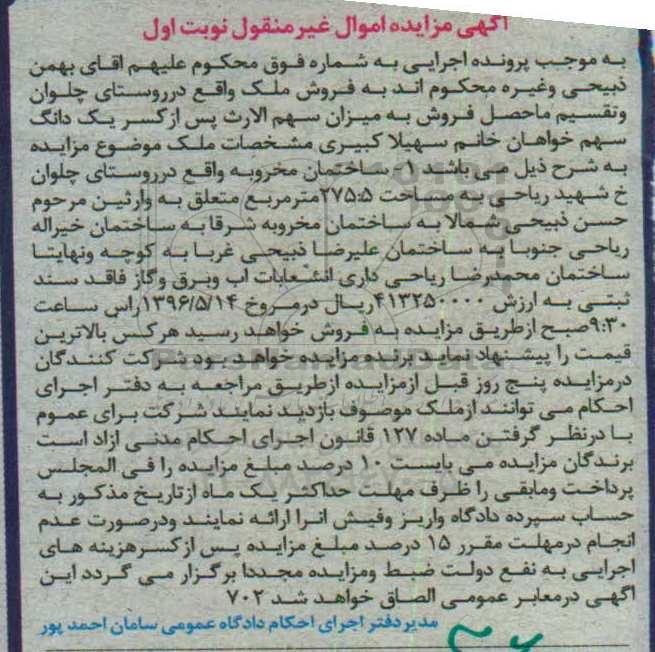 آگهی مزایده اموال غیر منقول نوبت اول
به موجب پرونده اجرایی به شماره فوق محکوم علیهم اقای بهمن
ذبیحی وغیره محکوم اند به فروش ملک واقع درروستای چلوان
وتقسیم ماحصل فروش به میزان سهم الارث پس ازکسر یک دانگ
سهم خواهان خانم سهیلا کبیری مشخصات ملک موضوع مزایده
به شرح ذیل می باشد 1_ ساختمان مخروبه واقع درروستای چلوان
خ شهید ریاحی به مساحت ۲۷۵:۵مترمربع متعلق به وارثین مرحوم
حسن ذبیحی شمالا به ساختمان مخروبه شرقا به ساختمان خیراله
ریاحی جنوبا به ساختمان علیرضا ذبیحی غربا به کوچه ونهایتا
ساختمان محمدرضا ریاحی داری انشعابات اب وبرق وگاز فاقد سند
ثبتی به ارزش ۴۱۳۲۵۰۰۰۰ریال درمروخ ۱۳۹۶/۵/۱۴راس ساعت
۹:۳۰صبح ازطریق مزایده به فروش خواهد رسید هرکس بالاترین
قیمت را پیشنهاد نماید برنده مزایده خواهد بود شرکت کنندگان
درمزایده پنج روز قبل ازمزایده ازطریق مراجعه به دفتر اجرای
احکام می توانند ازملک موصوف بازدید نمایند شرکت برای عموم
با درنظر گرفتن ماده ۱۲۷ قانون اجرای احکام مدنی ازاد است
برندگان مزایده می بایست ۱۰ درصد مبلغ مزایده را فی المجلس
پرداخت ومابقی را ظرف مهلت حداکثر یک ماه ازتاریخ مذکور به
حساب سپرده دادگاه واریز وفیش انرا ارائه نمایند ودرصورت عدم
انجام درمهلت مقرر ۱۵ درصد مبلغ مزایده پس ازکسرهزینه های
اجرایی به نفع دولت ضبط ومزایده مجددا برگزار می گردد این
اگهی درمعابر عمومی الصاق خواهد شد ۷۰۲
مدیردفتر اجرای احکام دادگاه عمومی سامان احمد پور